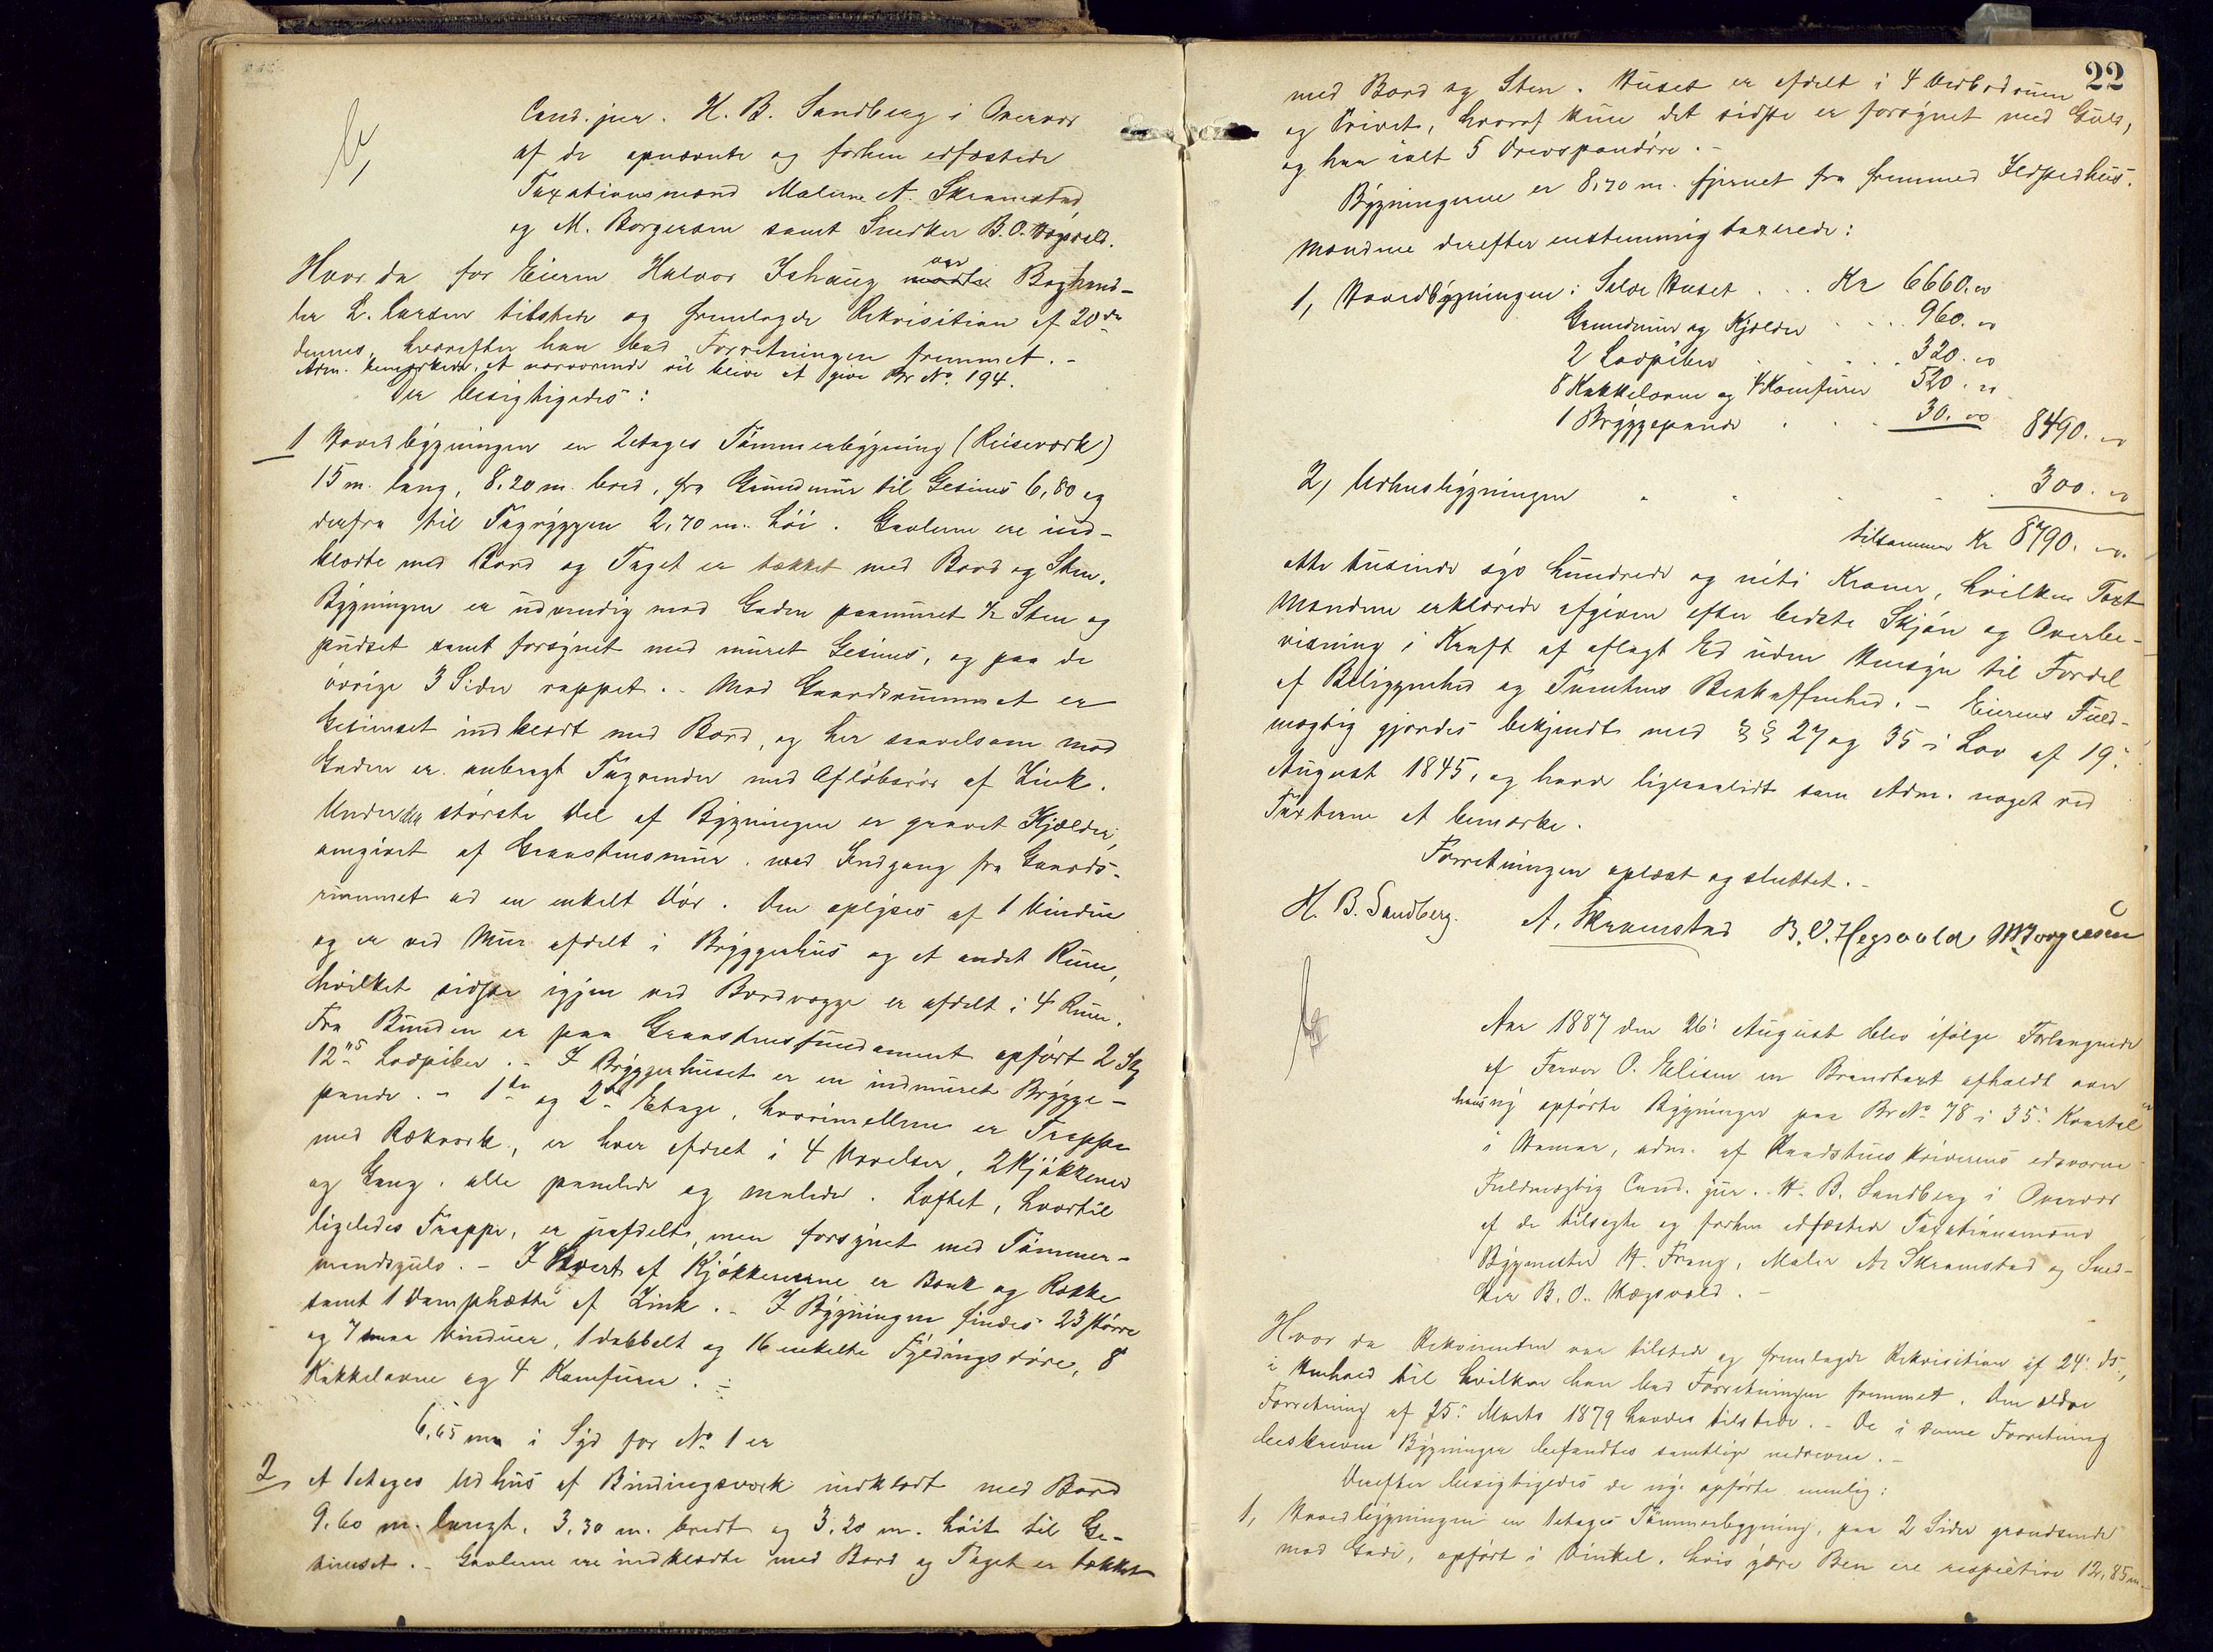 Cand. jur. H. B. Sandberg i Overvær
af de opnævnte og forhen edfæstede
Taxationsmænd Malerne A. Skramstad
og M. Borgersen samt Snedker B. O. Hegsvold.
Hvor da for Eieren Halvor Ishaug mødte var Boghand-
ler L. Larsen tilstede og fremlagde Rekvisition af 20de
dennes, hvorefter han bad Forretningen fremmet. -
Adm. bemærkede, at nærværende vil blive at give Br No. 194.
Der besigtigedes:
1 Hovedbygningen en 2etages Tømmerbygning (Reisværk)
15 m. lang, 8,20 m. bred, fra Grundmur til Gesims 6,80 og
derfra til Tagryggen 2,70 m. høi. Gavlerne ere ind-
klædte med Bord og Taget er tækket med Bord og Sten.
Bygningen er udvendig mod Gaden paamuret ½ Sten og
pudset samt forsynet med muret Gesims, og paa de
øvrige 3 Sider rappet. - Mod Gaardsrummet er
Gesimset indklædt med Bord, og her saavelsom mod
Gaden er anbragt Tagrender med Afløbsrør af Zink.
Under den største Del af Bygningen er gravet Kjælder,
omgivet af Graastensmur, med Indgang fra Gaards-
rummet ad en enkelt Dør. Den oplyses af 1 Vindue
og er ved Mur afdelt i Bryggerhus og et andet Rum,
hvilket sidste igjen ved Bordvægge er afdelt i 4 Rum.
Fra Bunden er paa Graastensfundament opført 2 Stk
12"s Lodpiber. - I Bryggerhuset er en indmuret Brygge-
pande. - 1ste og 2den Etage, hvorimellem er Trappe
med Rækværk, er hver afdelt i 4 Værelser, 2 Kjøkkener
og Gang, alle panelede og malede. Loftet, hvortil
ligeledes Trappe, er uafdelt, men forsynet med Tømmer-
mandsgulv. - I hvert af Kjøkkenerne er Bænk og Række
samt 1 Damphætte af Zink. - I Bygningen findes 23 større
og 7 smaa Vinduer, 1 dobbelt og 16 enkelte Fyldingsdøre, 8
Kakkelovne og 4 Komfurer. -
6,65 m i Syd for No 1 er
2, et 1etages Udhus af Bindingsværk indklædt med Bord
9.60 m. langt, 3,30 m. bredt og 3,20 m. høit til Ge-
simset. - Gavlerne ere indklædte med Bord og Taget er tækket
22
med Bord og Sten. Huset er afdelt i 4 Vedbodrum
og Privet, hvoraf kun det sidste er forsynet med Gulv,
og har ialt 5 Drevspanddøre. -
Bygningerne er 8,70 m. fjernet fra fremmed Ildstedhus.
Mændene derefter enstemmig taxerede:
1, Hovedbygningen: Selve Huset . . . Kr 6660.00
Grundmur og Kjælder . . . 960.00
2 Lodpiber . . . . 320.00
8 Kakkelovne og 4 Komfurer 520.00
1 Bryggepande . . . 30.00 8490.00
2, Udhusbygningen . . . . . 300.00
tilsammen Kr 8790.00.
otte tusinde syv hundrede og niti Kroner, hvilken Taxt
Mændene erklærede afgiven efter bedste Skjøn og Overbe-
visning i Kraft af aflagt Ed uden Hensyn til Fordel
af Beliggenhed og Tomtens Beskaffenhed. - Eierens Fuld-
mægtig gjordes bekjendt med §§ 27 og 35 i Lov af 19:
August 1845, og havde ligesaalidt som Adm. noget ved
Taxterne at bemærke.
Forretningen oplæst og sluttet. -
H. B. Sandberg. A. Skramstad B. O. Hegsvold M Borgersen
Aar 1887 den 26: August blev ifølge Forlangende
af Farver O. Elisen en Brandtaxt afholdt over
hans ny opførte Bygninger paa Br No 78 i 35: Kvartal
i Hamar, adm. af Raadstueskriverens edsvorne
Fuldmægtig Cand. jur. H. B. Sandberg i Overvær
af de tilsagte og forhen edfæstede Taxationsmænd
Bygmester H. Frang, Maler A. Skramstad og Sned-
ker B. O. Hegsvold. -
Hvor da Rekvirenten var tilstede og fremlagde Rekvisition af 24: ds,
i Henhold til hvilken han bad Forretningen fremmet. Den ældre
Forretning af 25: Marts 1879 havdes tilstede. - De i denne Forretning
beskrevne Bygninger befandtes samtlige nedrevne. -
Derefter besigtigedes de nye opførte nemlig:
1, Hovedbygningen en 1etages Tømmerbygning, paa 2 Sider grændsende
mod Gade, opført i Vinkel, hvis ydre Ben ere respective 12,85 m.